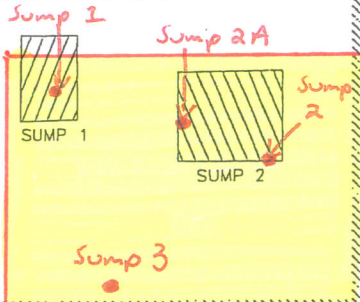 Sump 1
Sump 2A
Sump
2
SUMP 1
SUMP 2
Sump 3